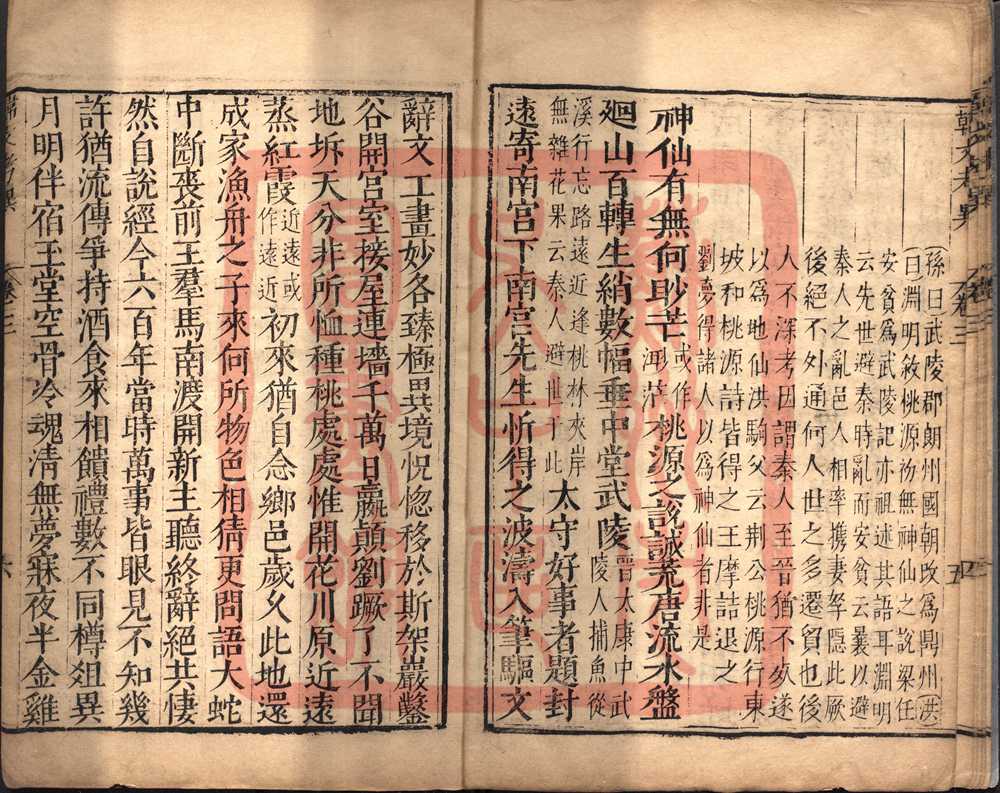 孫曰武陵郡朗州國朝改爲鼎州洪
曰淵明敘桃源初無神仙之說梁任
安貧爲武陵記亦祖述其語耳淵明
云先世避秦時亂而安貧云曩以避
秦人之亂邑人相率携妻孥隱此厥
後絕不外通何人世之多遷貿也後
人不深考因謂秦人至晉猶不死遂
以爲地仙洪駒父云荆公桃源行東
坡和桃源詩皆得之王摩詰退之
劉夢得諸人以爲神仙者非是
神仙有無何眇芒或作渺茫桃源之說誠荒唐流水盤
廻山百轉生綃數幅垂中堂武陵晉太康中武陵人捕魚從
溪行忘路遠近逢桃林夾岸無雜花果云秦人避世于此太守好事者題封
遠寄南宮下南宮先生忻得之波濤入筆驅文
辭文工畫妙各臻極異境怳惚移於斯架巖鑿
谷開宮室接屋連墻千萬日嬴顛劉蹶了不聞
地坼天分非所恤種桃處處惟開花川原近遠
蒸紅霞近遠或作遠近初來猶自念鄉邑歲久此地還
成家漁舟之子來何所物色相猜更問語大蛇
中斷喪前王羣馬南渡開新主聽終辭絕共悽
然自說經今六百年當時萬事皆眼見不知幾
許猶流傳爭持酒食來相饋禮數不同樽俎異
月明伴宿玉堂空骨冷魂淸無夢寐夜半金雞